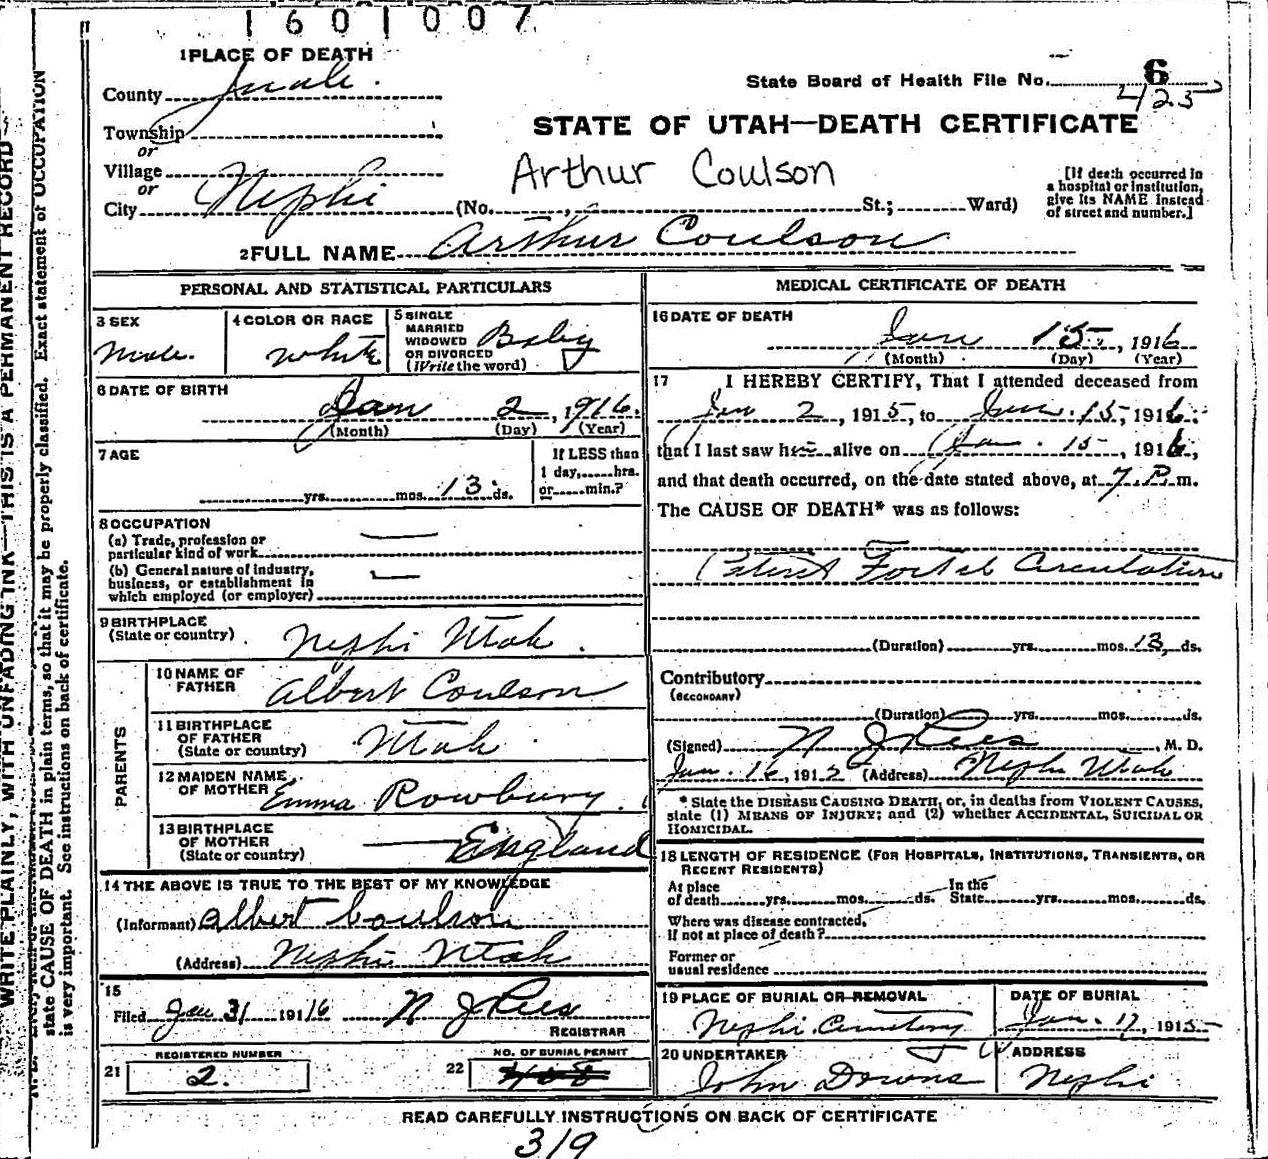 1601007
1 PLACE OF DEATH
County Juab.
State Board of Health File No. 6
425
Township
or
STATE OF UTAH—DEATH CERTIFICATE
Village
or
Arthur Coulson
[If death occurred in a hospital or institution, give its NAME instead of street and number.]
City Nephi (No. , St.; Ward)
2 FULL NAME Arthur Coulson
PERSONAL AND STATISTICAL PARTICULARS
3 SEX
Male.
4 COLOR OR RACE
White
5 SINGLE
MARRIED
WIDOWED
OR DIVORCED
(Write the word)
Baby
6 DATE OF BIRTH
Jan 2, 1916.
(Month) (Day) (Year)
7 AGE
yrs. mos. 13 ds.
If LESS than
1 day, hrs.
or min.?
8 OCCUPATION
(a) Trade, profession or
particular kind of work
(b) General nature of industry,
business, or establishment in
which employed (or employer)
9 BIRTHPLACE
(State or country) Nephi Utah.
PARENTS
10 NAME OF
FATHER Albert Coulson
11 BIRTHPLACE
OF FATHER
(State or country) Utah.
12 MAIDEN NAME
OF MOTHER Emma Rowbury.
13 BIRTHPLACE
OF MOTHER
(State or country) England
14 THE ABOVE IS TRUE TO THE BEST OF MY KNOWLEDGE
(Informant) Albert Coulson
(Address) Nephi Utah
15
Filed Jan 31 19116 N J Rees
REGISTRAR
REGISTERED NUMBER
21 2.
NO. OF BURIAL PERMIT
22
MEDICAL CERTIFICATE OF DEATH
16 DATE OF DEATH
Jan 15, 1916
(Month) (Day) (Year)
17 I HEREBY CERTIFY, That I attended deceased from
Jan 2, 1915, to Jan. 15, 1916.
that I last saw him alive on Jan. 15, 1916,
and that death occurred, on the date stated above, at 7 P. m.
The CAUSE OF DEATH* was as follows:
Patent Foetal Circulation
(Duration) yrs. mos. 13 ds.
Contributory
(SECONDARY)
(Duration) yrs. mos. ds.
(Signed) N J Rees, M. D.
Jan. 16, 1915 (Address) Nephi Utah
* State the DISEASE CAUSING DEATH, or, in deaths from VIOLENT CAUSES,
state (1) MEANS OF INJURY; and (2) whether ACCIDENTAL, SUICIDAL OR
HOMICIDAL.
18 LENGTH OF RESIDENCE (FOR HOSPITALS, INSTITUTIONS, TRANSIENTS, OR
RECENT RESIDENTS)
At place
of death yrs. mos. ds.
In the
State yrs. mos. ds.
Where was disease contracted,
if not at place of death?
Former or
usual residence
19 PLACE OF BURIAL OR REMOVAL
Nephi Cemetery
DATE OF BURIAL
Jan. 17, 1915
20 UNDERTAKER
John Downs
ADDRESS
Nephi
READ CAREFULLY INSTRUCTIONS ON BACK OF CERTIFICATE
319
WRITE PLAINLY, WITH UNFADING INK—THIS IS A PERMANENT RECORD
state CAUSE OF DEATH in plain terms, so that it may be properly classified. Exact statement of OCCUPATION
is very important. See instructions on back of certificate.